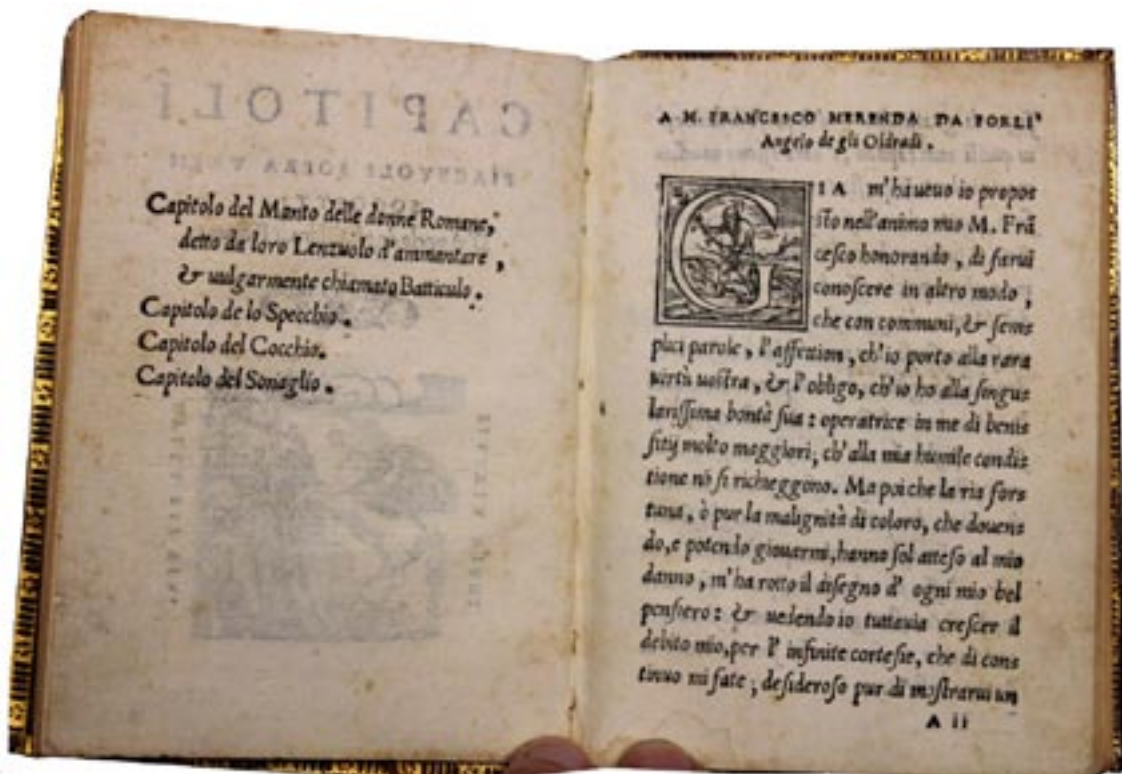 Capitolo del Manto delle donne Romane,
detto da loro Lenzuolo d'ammantare,
& uulgarmente chiamato Batticulo.
Capitolo de lo Specchio.
Capitolo del Cocchio.
Capitolo del Sonaglio.
A M. FRANCESCO MERENDA DA FORLI'
Angelo de gli Oldradi.
GIA m'haueuo io propos
ſto nell'animo mio M. Frā
ceſco honorando, di farui
conoſcere in altro modo,
che con communi, & ſem=
plici parole, l'affettion, ch'io porto alla rara
uirtù uoſtra, & l'obligo, ch'io ho alla ſingu=
lariſſima bontà ſua: operatrice in me di bene=
fitij molto maggiori, ch'alla mia humile condi=
tione nō ſi richieggono. Ma poi che la ria for=
tuna, ò pur la malignità di coloro, che douen=
do, e potendo giouarmi, hanno ſol atteſo al mio
danno, m'ha rotto il diſegno d'ogni mio bel
penſiero: & uedendo io tuttauia creſcer il
debito mio, per l'infinite corteſie, che di con=
tinuo mi fate, deſideroſo pur di moſtrarui un
A ii
CAPITOLI